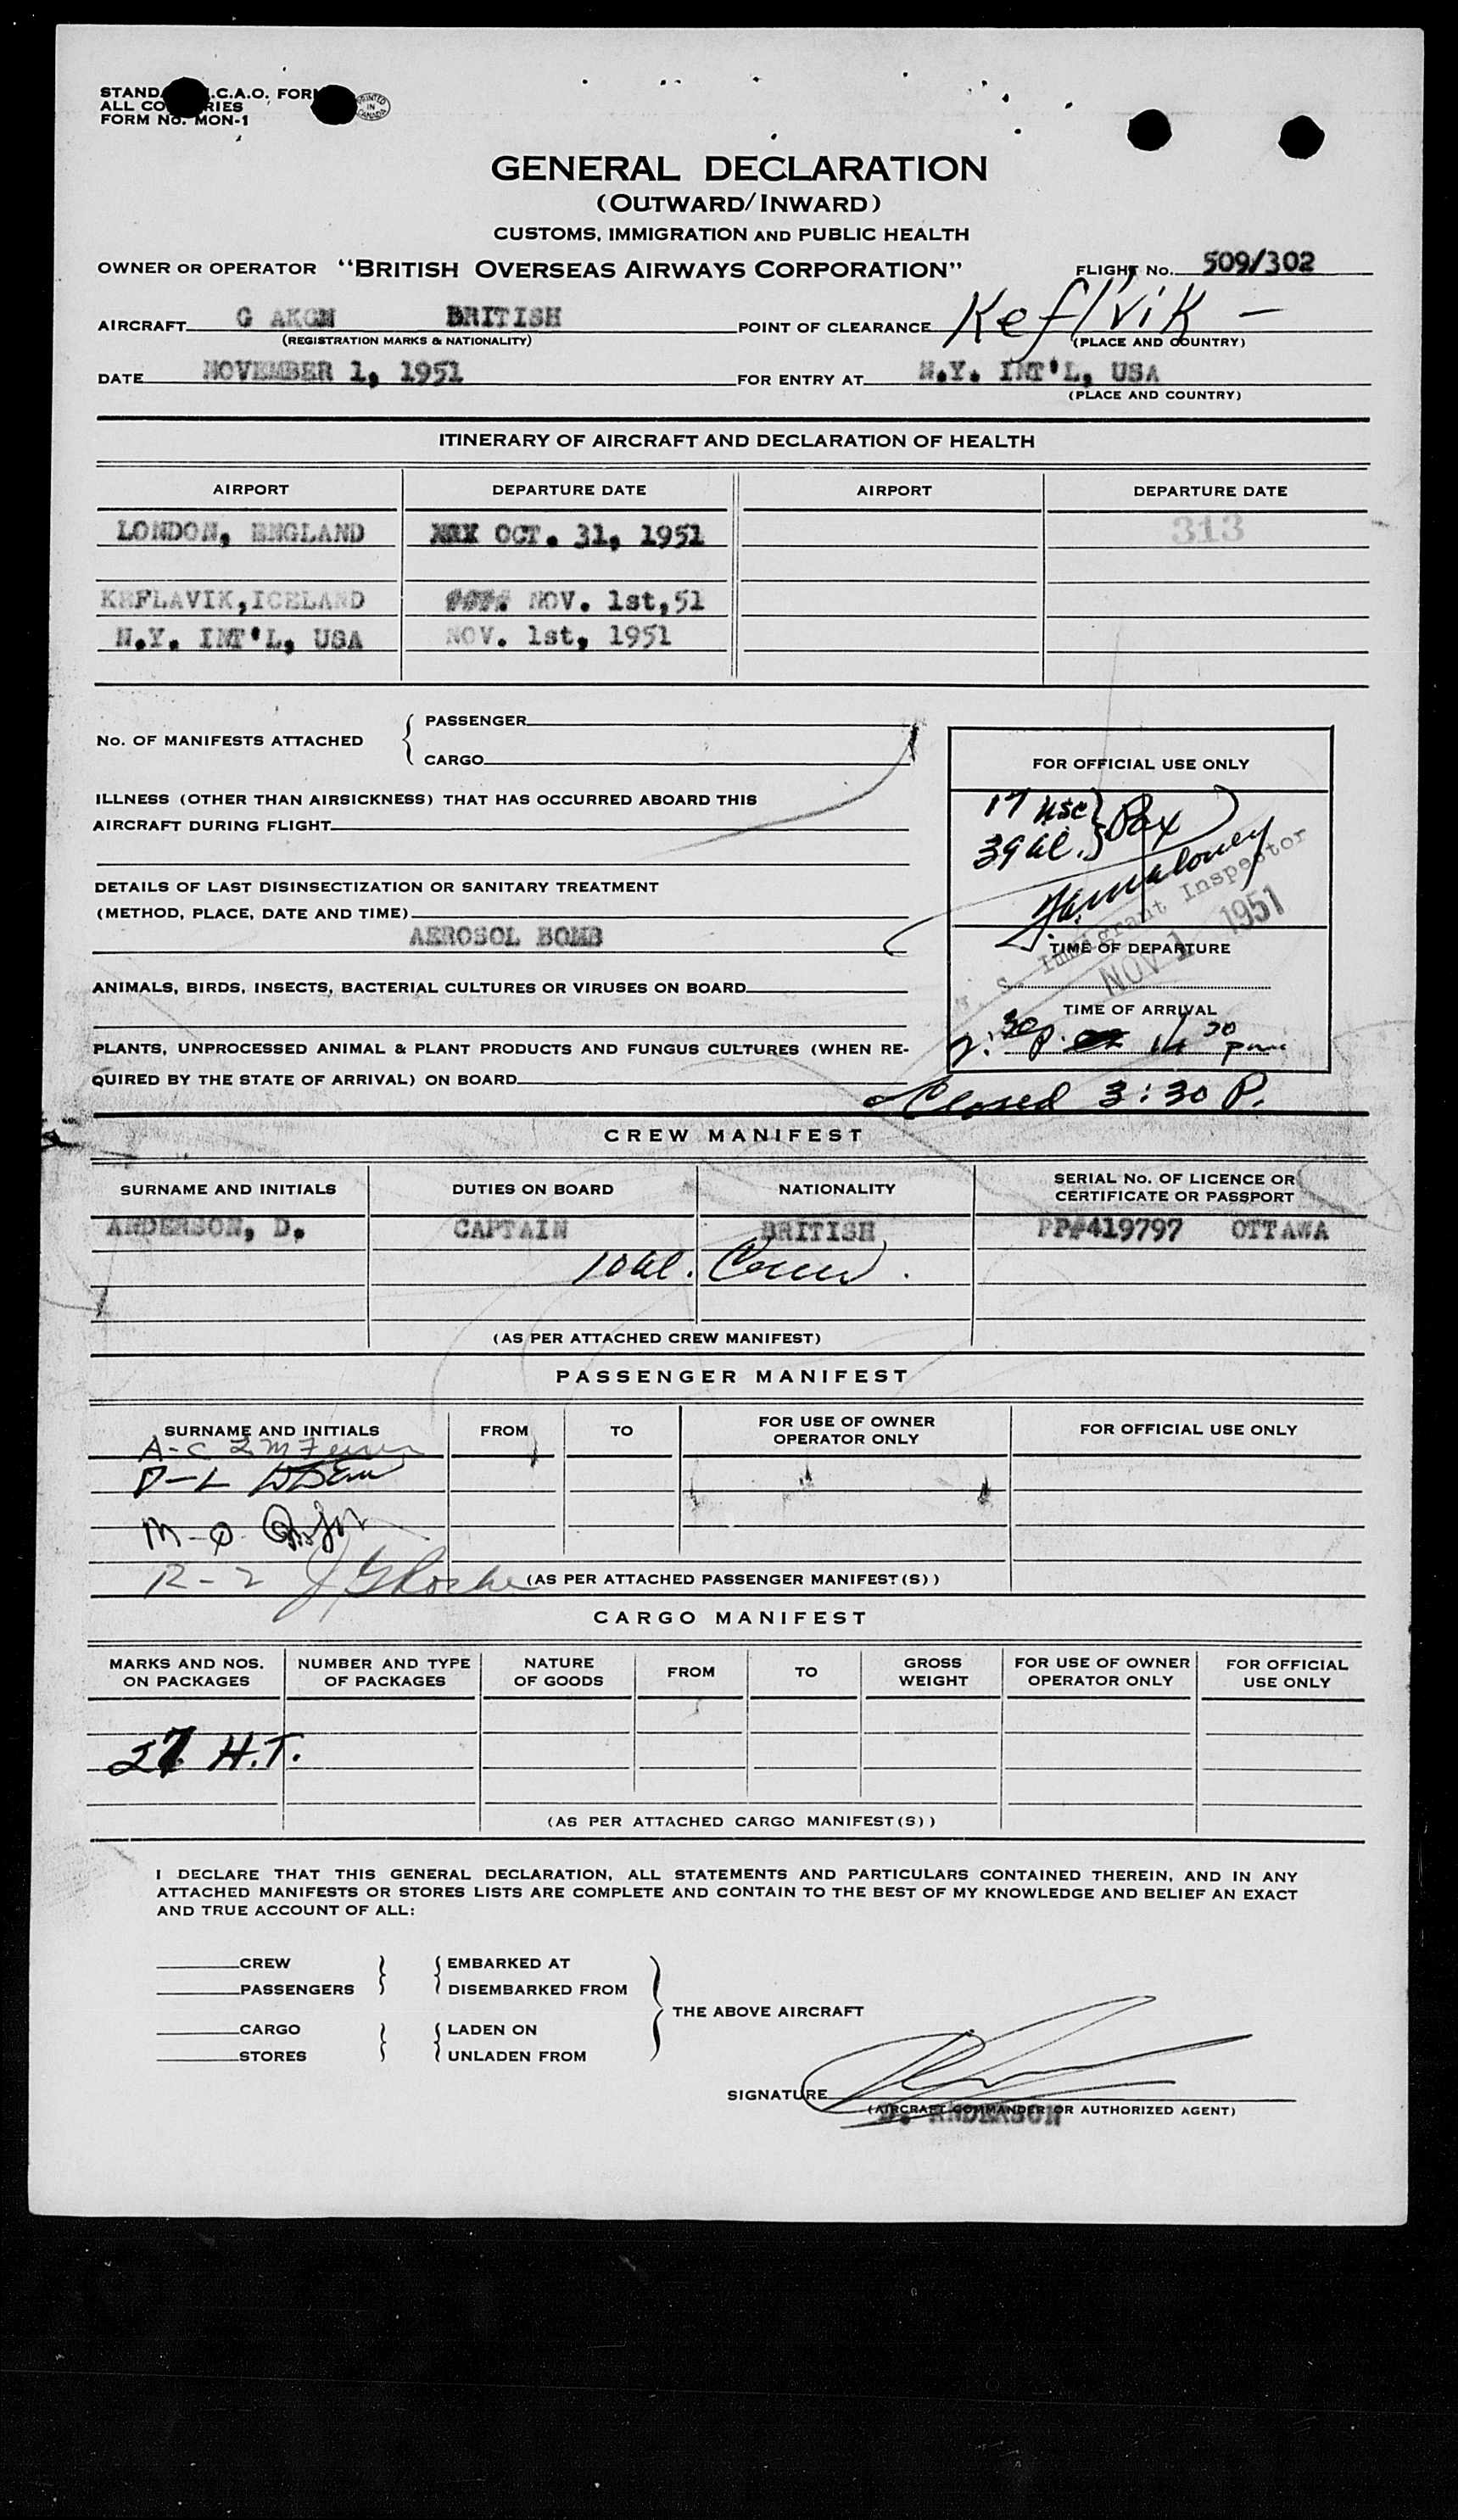 STAND I.C.A.O. FORM
ALL COUNTRIES
FORM No. MON-1
PRINTED IN CANADA
GENERAL DECLARATION
(OUTWARD/INWARD)
CUSTOMS, IMMIGRATION AND PUBLIC HEALTH
OWNER OR OPERATOR "BRITISH OVERSEAS AIRWAYS CORPORATION" FLIGHT No. 509/302
AIRCRAFT G AKGM BRITISH POINT OF CLEARANCE Keflvik -
(REGISTRATION MARKS & NATIONALITY) (PLACE AND COUNTRY)
DATE NOVEMBER 1, 1951 FOR ENTRY AT N.Y. INT'L, USA
(PLACE AND COUNTRY)
ITINERARY OF AIRCRAFT AND DECLARATION OF HEALTH
AIRPORT DEPARTURE DATE AIRPORT DEPARTURE DATE
LONDON, ENGLAND OCT. 31, 1951 313
KEFLAVIK, ICELAND NOV. 1st, 51
N.Y. INT'L, USA NOV. 1st, 1951
No. OF MANIFESTS ATTACHED
PASSENGER
CARGO
FOR OFFICIAL USE ONLY
ILLNESS (OTHER THAN AIRSICKNESS) THAT HAS OCCURRED ABOARD THIS
AIRCRAFT DURING FLIGHT
17 usc
39 al. } Pax
DETAILS OF LAST DISINSECTIZATION OR SANITARY TREATMENT
(METHOD, PLACE, DATE AND TIME)
AEROSOL BOMB
Immigrant Inspector
NOV 1 1951
TIME OF DEPARTURE
ANIMALS, BIRDS, INSECTS, BACTERIAL CULTURES OR VIRUSES ON BOARD
TIME OF ARRIVAL
PLANTS, UNPROCESSED ANIMAL & PLANT PRODUCTS AND FUNGUS CULTURES (WHEN RE-
QUIRED BY THE STATE OF ARRIVAL) ON BOARD
Closed 3:30 P.
CREW MANIFEST
SURNAME AND INITIALS DUTIES ON BOARD NATIONALITY SERIAL No. OF LICENCE OR CERTIFICATE OR PASSPORT
ANDERSON, D. CAPTAIN BRITISH PP#419797 OTTAWA
10 al. Crew.
(AS PER ATTACHED CREW MANIFEST)
PASSENGER MANIFEST
SURNAME AND INITIALS FROM TO FOR USE OF OWNER OPERATOR ONLY FOR OFFICIAL USE ONLY
A-C
D-L
M-Q
R-Z
(AS PER ATTACHED PASSENGER MANIFEST(S))
CARGO MANIFEST
MARKS AND NOS. ON PACKAGES NUMBER AND TYPE OF PACKAGES NATURE OF GOODS FROM TO GROSS WEIGHT FOR USE OF OWNER OPERATOR ONLY FOR OFFICIAL USE ONLY
27 H.T.
(AS PER ATTACHED CARGO MANIFEST(S))
I DECLARE THAT THIS GENERAL DECLARATION, ALL STATEMENTS AND PARTICULARS CONTAINED THEREIN, AND IN ANY
ATTACHED MANIFESTS OR STORES LISTS ARE COMPLETE AND CONTAIN TO THE BEST OF MY KNOWLEDGE AND BELIEF AN EXACT
AND TRUE ACCOUNT OF ALL:
CREW EMBARKED AT
PASSENGERS DISEMBARKED FROM
THE ABOVE AIRCRAFT
CARGO LADEN ON
STORES UNLADEN FROM
SIGNATURE
(AIRCRAFT COMMANDER OR AUTHORIZED AGENT)
D. ANDERSON